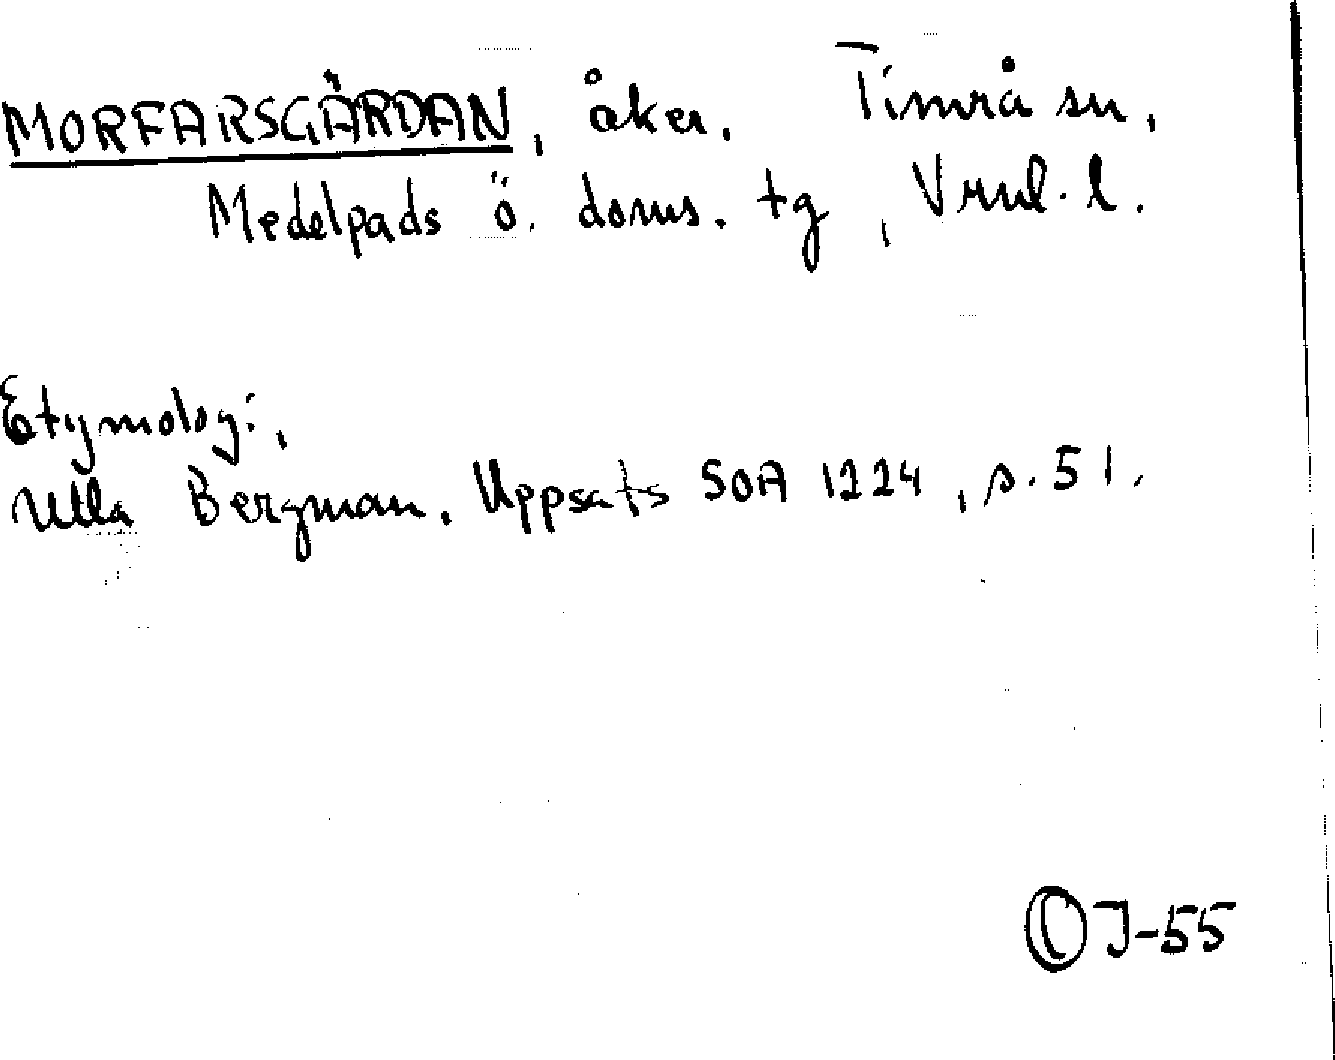 MORFARSGÄRDAN, åker. Timrå sn,
Medelpads ö. doms. tg, Vrnl. l.
Etymologi,
Ulla Bergman. Uppsats SOA 1224, s. 51.
© J-55